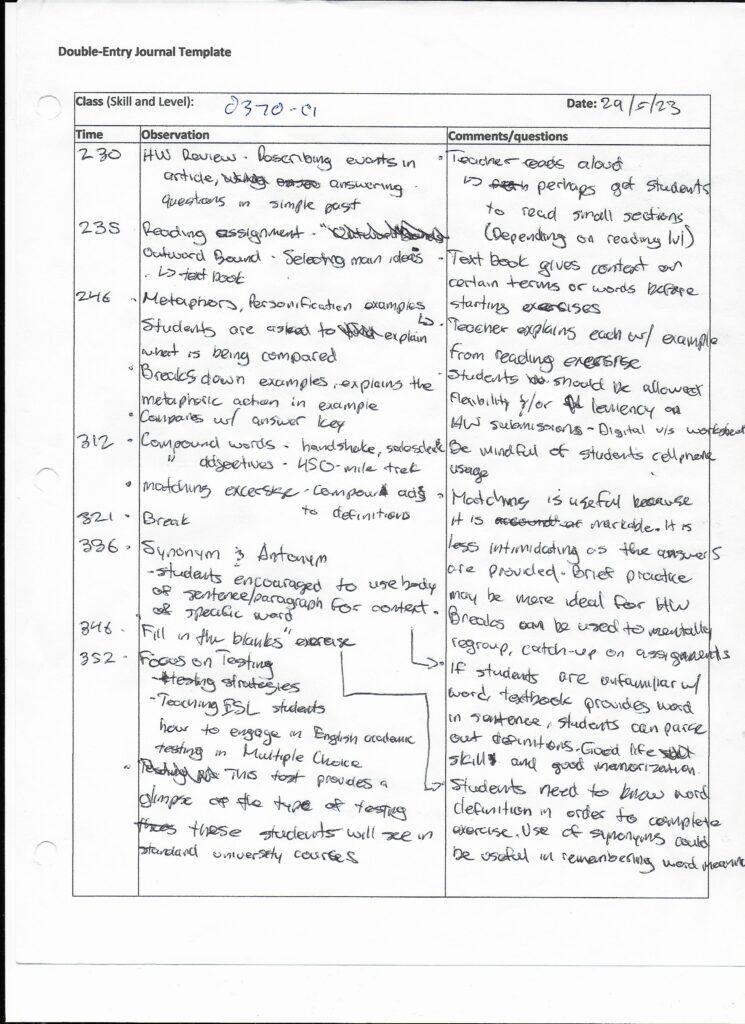 Double-Entry Journal Template
Class (Skill and Level): 0370-01
Date: 29/5/23
Time
Observation
Comments/questions
230
HW Review - Describing events in
article, answering
questions in simple past
235
Reading assignment - "
Outward Bound - Selecting main ideas
↳ text book
246
• Metaphors, Personification examples
Students are asked to explain
what is being compared
• Breaks down examples, explains the
metaphoric action in example
• Compares w/ answer key
312
• Compound words - handshake, salesdesk
" adjectives - 450-mile trek
• matching excersise - compound adjs
to definitions
321
• Break
336
• Synonym & Antonym
- students encouraged to use body
of sentence/paragraph for context.
of specific word
346
• Fill in the blanks" exercise
352
• Focus on Testing
- testing strategies
- Teaching ESL students
how to engage in English academic
testing in Multiple Choice
• This test provides a
glimpse of the type of testing
these students will see in
standard university courses
• Teacher reads aloud
↳ perhaps get students
to read small sections
(Depending on reading lvl)
• Text book gives context on
certain terms or words before
starting exercises
↳ Teacher explains each w/ example
from reading exersise
Students should be allowed
flexibility &/or leniency on
HW submissions - Digital v/s worksheet
Be mindful of students cellphone
usage
• Matching is useful because
it is markable. It is
less intimidating as the answers
are provided. Brief practice
may be more ideal for HW
Breaks can be used to mentally
regroup, catch-up on assignments
• If students are unfamiliar w/
word, textbook provides word
in sentence, students can parse
out definitions. Good life
skill and good memorization.
Students need to know word
definition in order to complete
exercise. Use of synonyms could
be useful in remembering word meaning